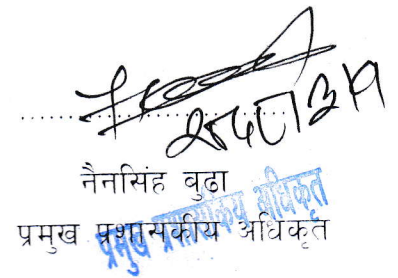 नैनसिंह वुढा
प्रमुख प्रशासकीय अधिकृत
प्रमुख प्रशासकीय अधिकृत